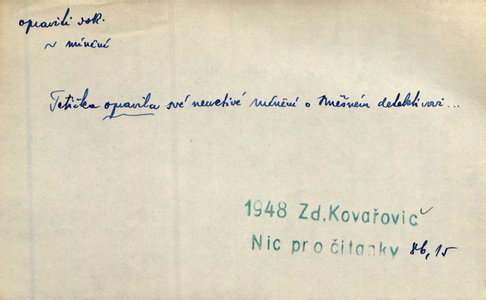 opraviti dok.
~ mínění
Tetička opravila své neuctivé mínění o směšném detektivovi...
1948 Zd. Kovařovic
Nic pro čítanky 86,15